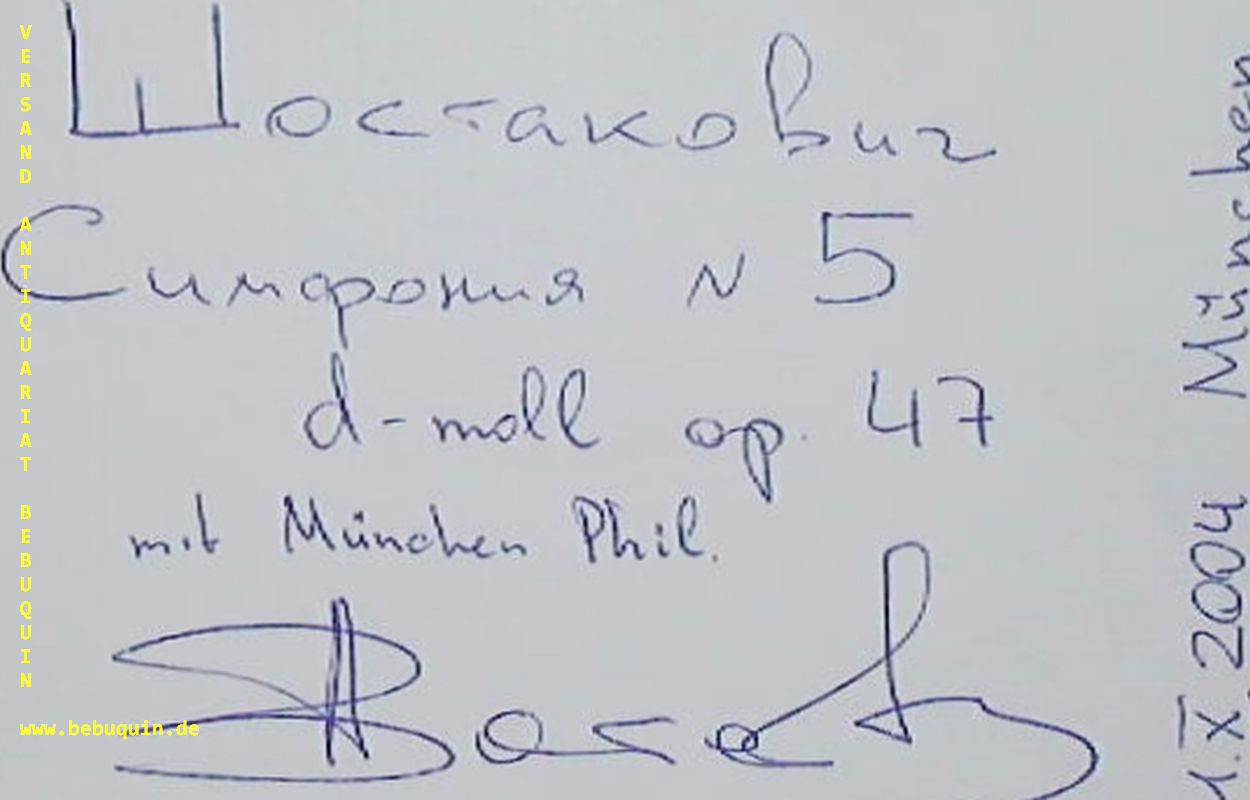 Шостакович
Симфония N 5
d-moll op. 47
mit München Phil.
1.X.2004 München
VERSAND ANTIQUARIAT BEBUQUIN
www.bebuquin.de